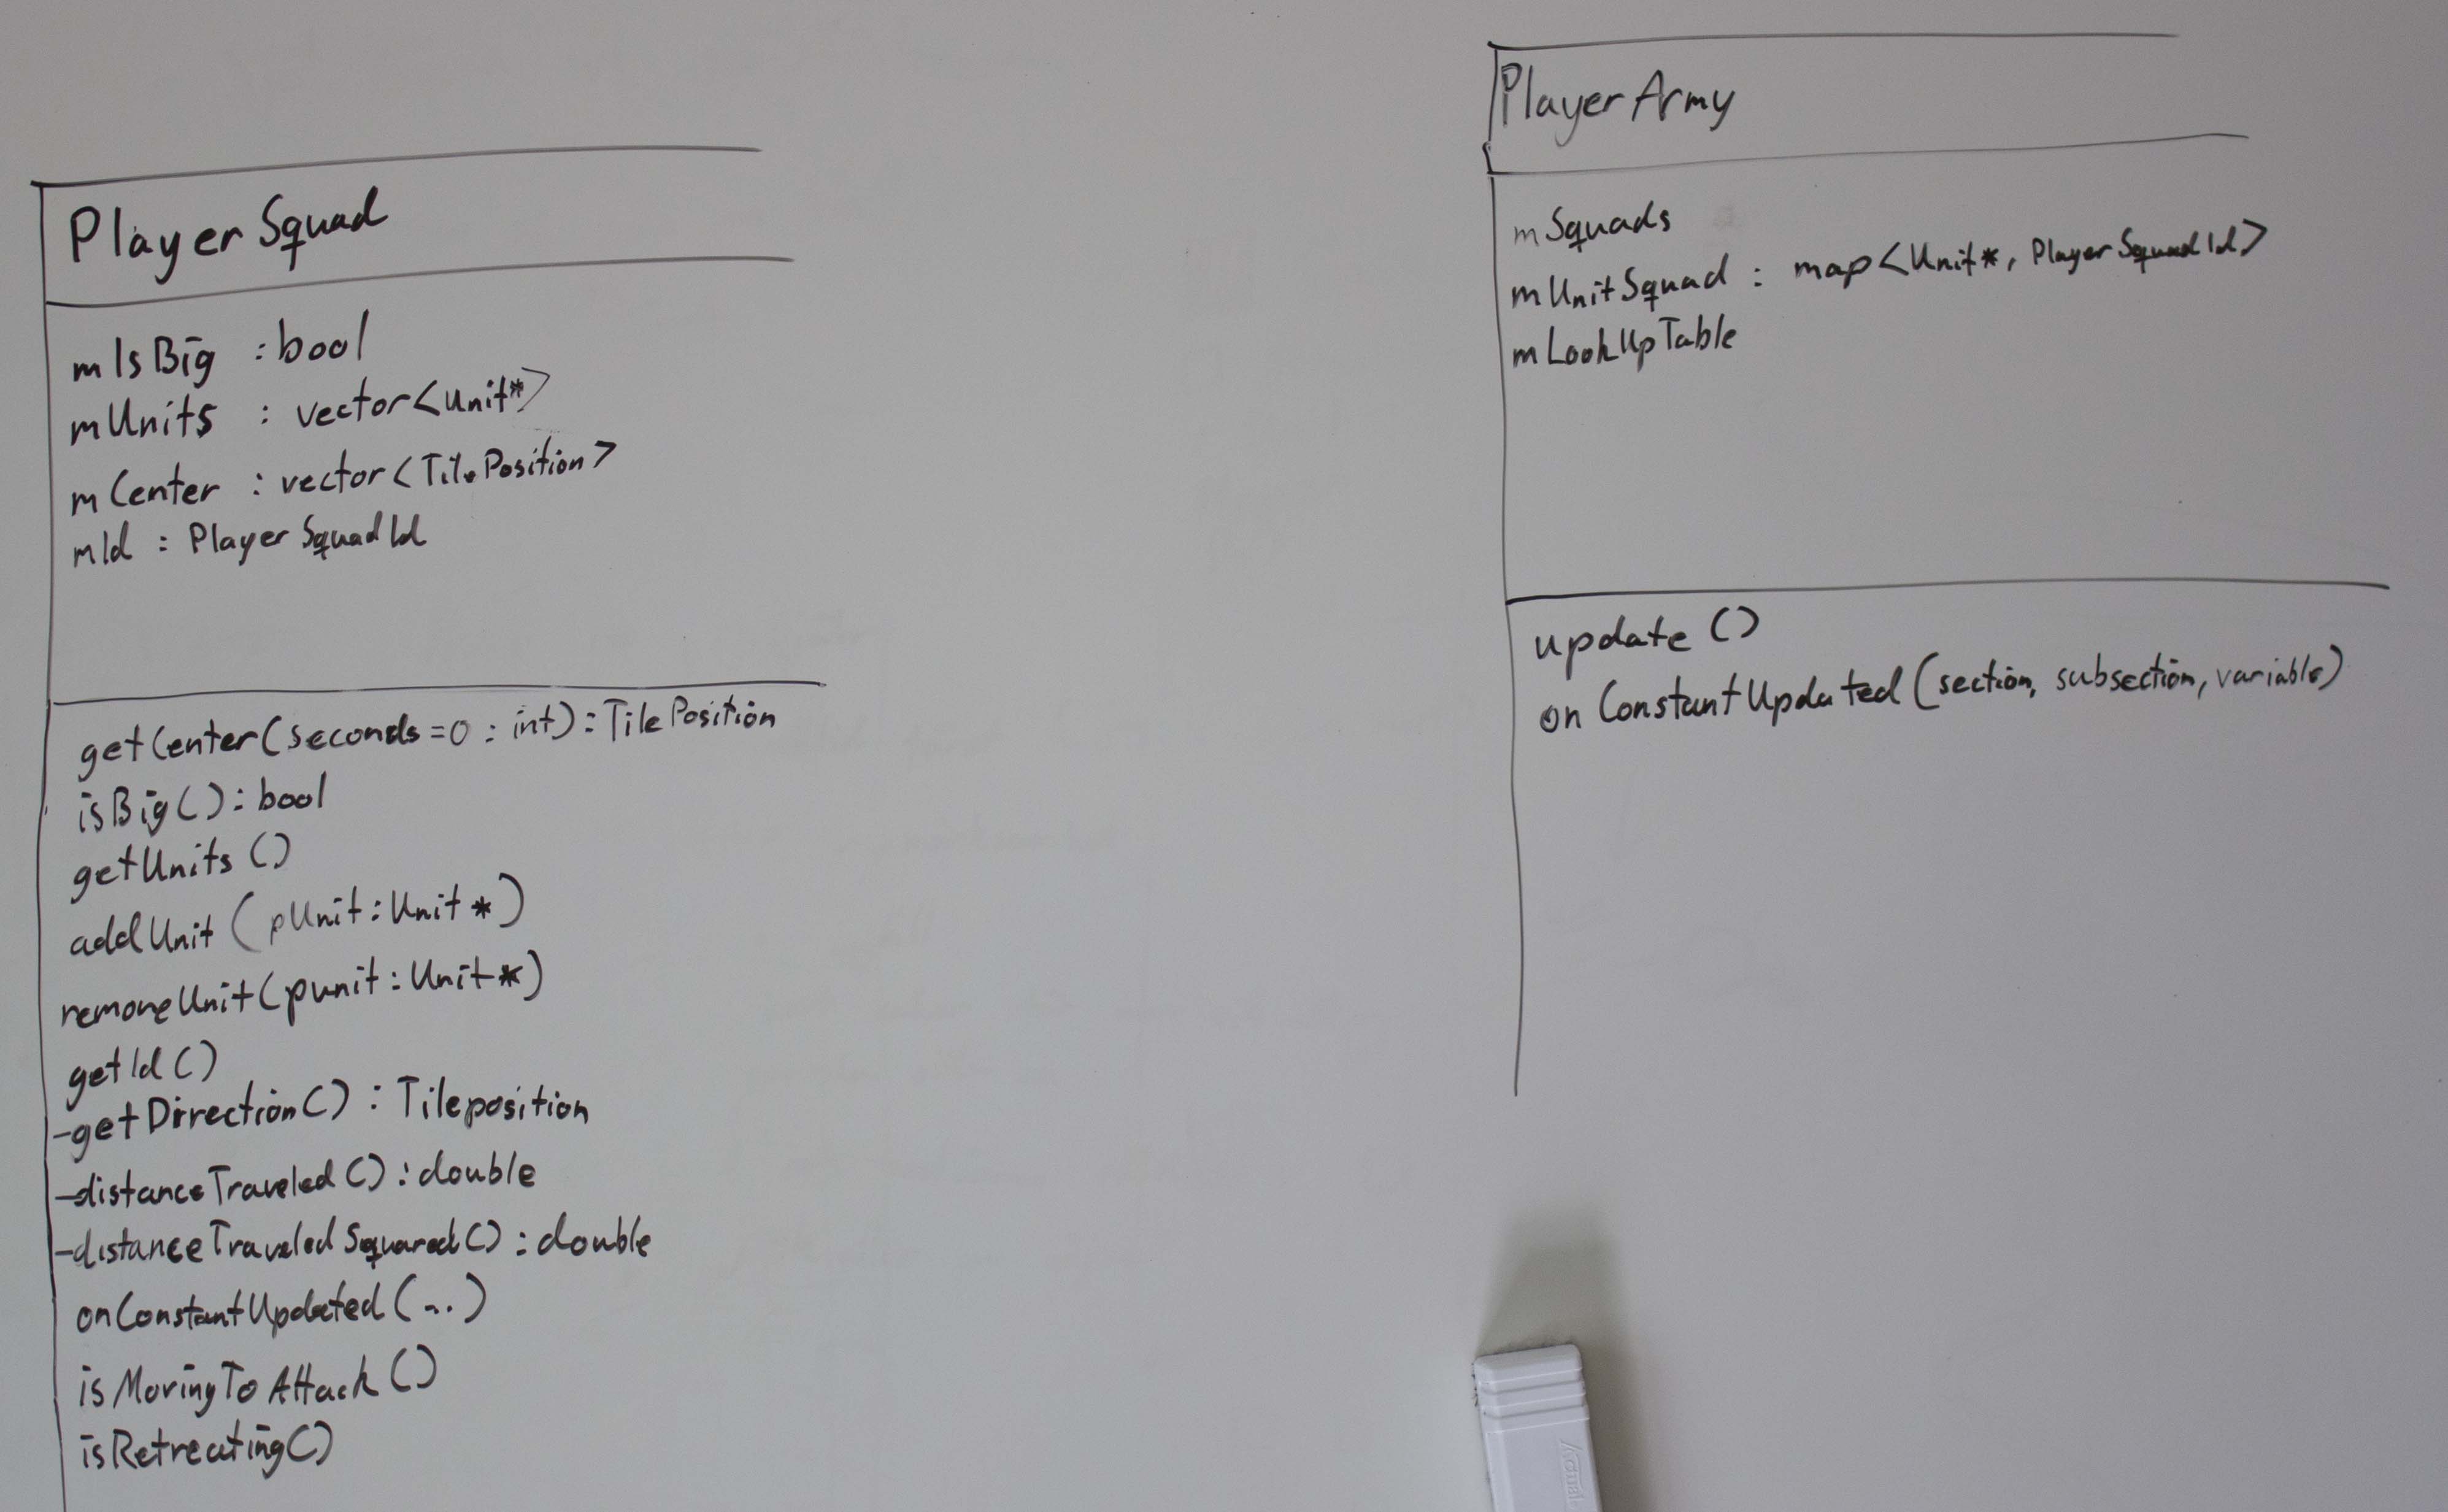 PlayerSquad
mIsBig : bool
mUnits : vector<Unit*>
mCenter : vector<TilePosition>
mId : PlayerSquadId
getCenter(seconds=0 : int) : TilePosition
isBig() : bool
getUnits()
addUnit(pUnit : Unit*)
removeUnit(punit : Unit*)
getId()
-getDirection() : Tileposition
-distanceTraveled() : double
-distanceTraveledSquared() : double
onConstantUpdated(...)
isMovingToAttack()
isRetreating()
PlayerArmy
mSquads
mUnitSquad : map<Unit*, PlayerSquadId>
mLookUpTable
update()
onConstantUpdated(section, subsection, variable)